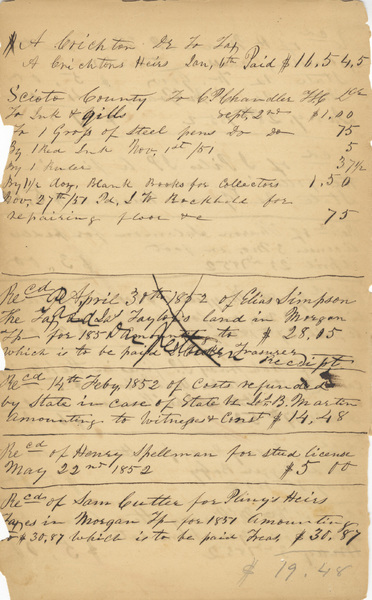 A Crichton Dr To Tax
A Crichtons Heirs Jan, 6th Paid $ 16,54,5
Scioto County To C P Chandler Dr
To Ink & Quills Sept, 2nd $1.00
To 1 Gross of Steel pens Do do 75
By 1 Red Ink Nov, 1st/51 5
By 1 Ruler 37½
By 1½ doz, Blank Books for Collectors 1.50
Nov, 27th/51 Pd, J W Rockhill for
repairing floor &c 75
Recd April 30th 1852 of Elias Simpson
the Tax on Taylor's land in Morgan
Tp for 185 amounting to $ 28,05
which is to be paid Treasurer
Receipt
Recd 14th Feby, 1852 of Costs refunded
by State in case of State vs B. Martin
amounting to Witness & Const $ 14,48
Recd of Henry Spellman for stud license
May 22nd 1852 $5 00
Recd of Sam Cutler for Pliny's Heirs
Taxes in Morgan Tp for 1851 amounting
to $30,87 which is to be paid Treas $30.87
$ 19.48